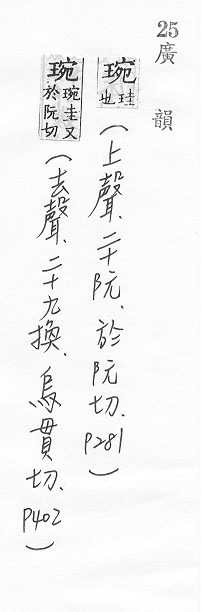 25
廣韻
琬圭也（上聲、二十阮、於阮切、P281）
琬琬圭又於阮切（去聲、二十九換、烏貫切、P402）